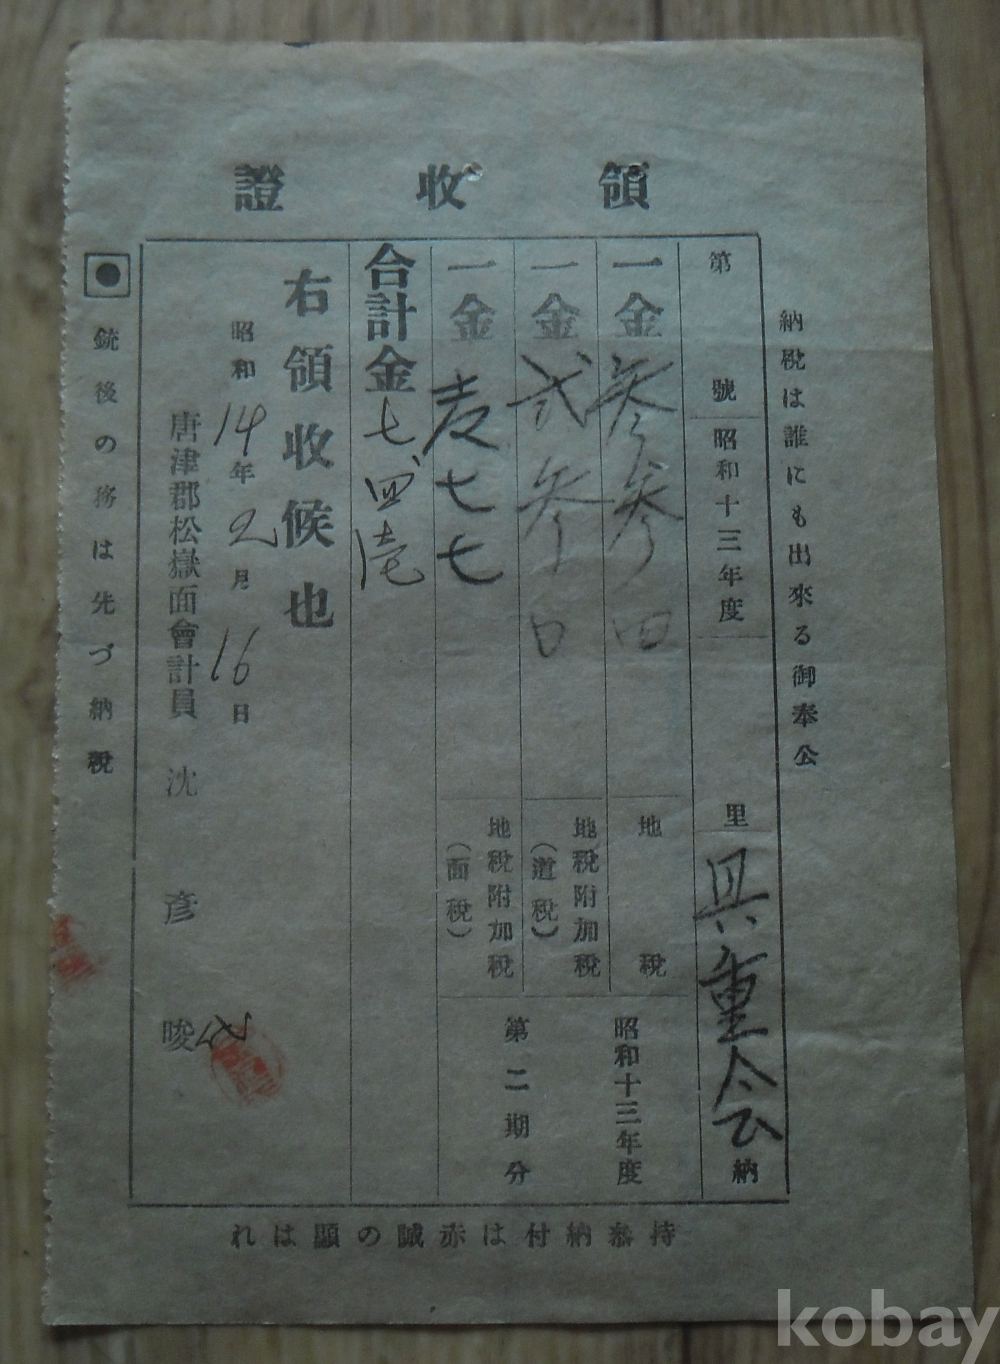 領收證
納稅は誰にも出來る御奉公
第 號 昭和十三年度 里 重 納
一金 参参田 地稅 昭和十三年度
一金 弐参 地稅附加稅(道稅)
一金 七七 地稅附加稅(面稅) 第二期分
合計金 七四壱
右領收候也
昭和14年2月16日
唐津郡松嶽面會計員 沈彥晙 代
銃後の務は先づ納稅
持參納付は赤誠の顯はれ
kobay